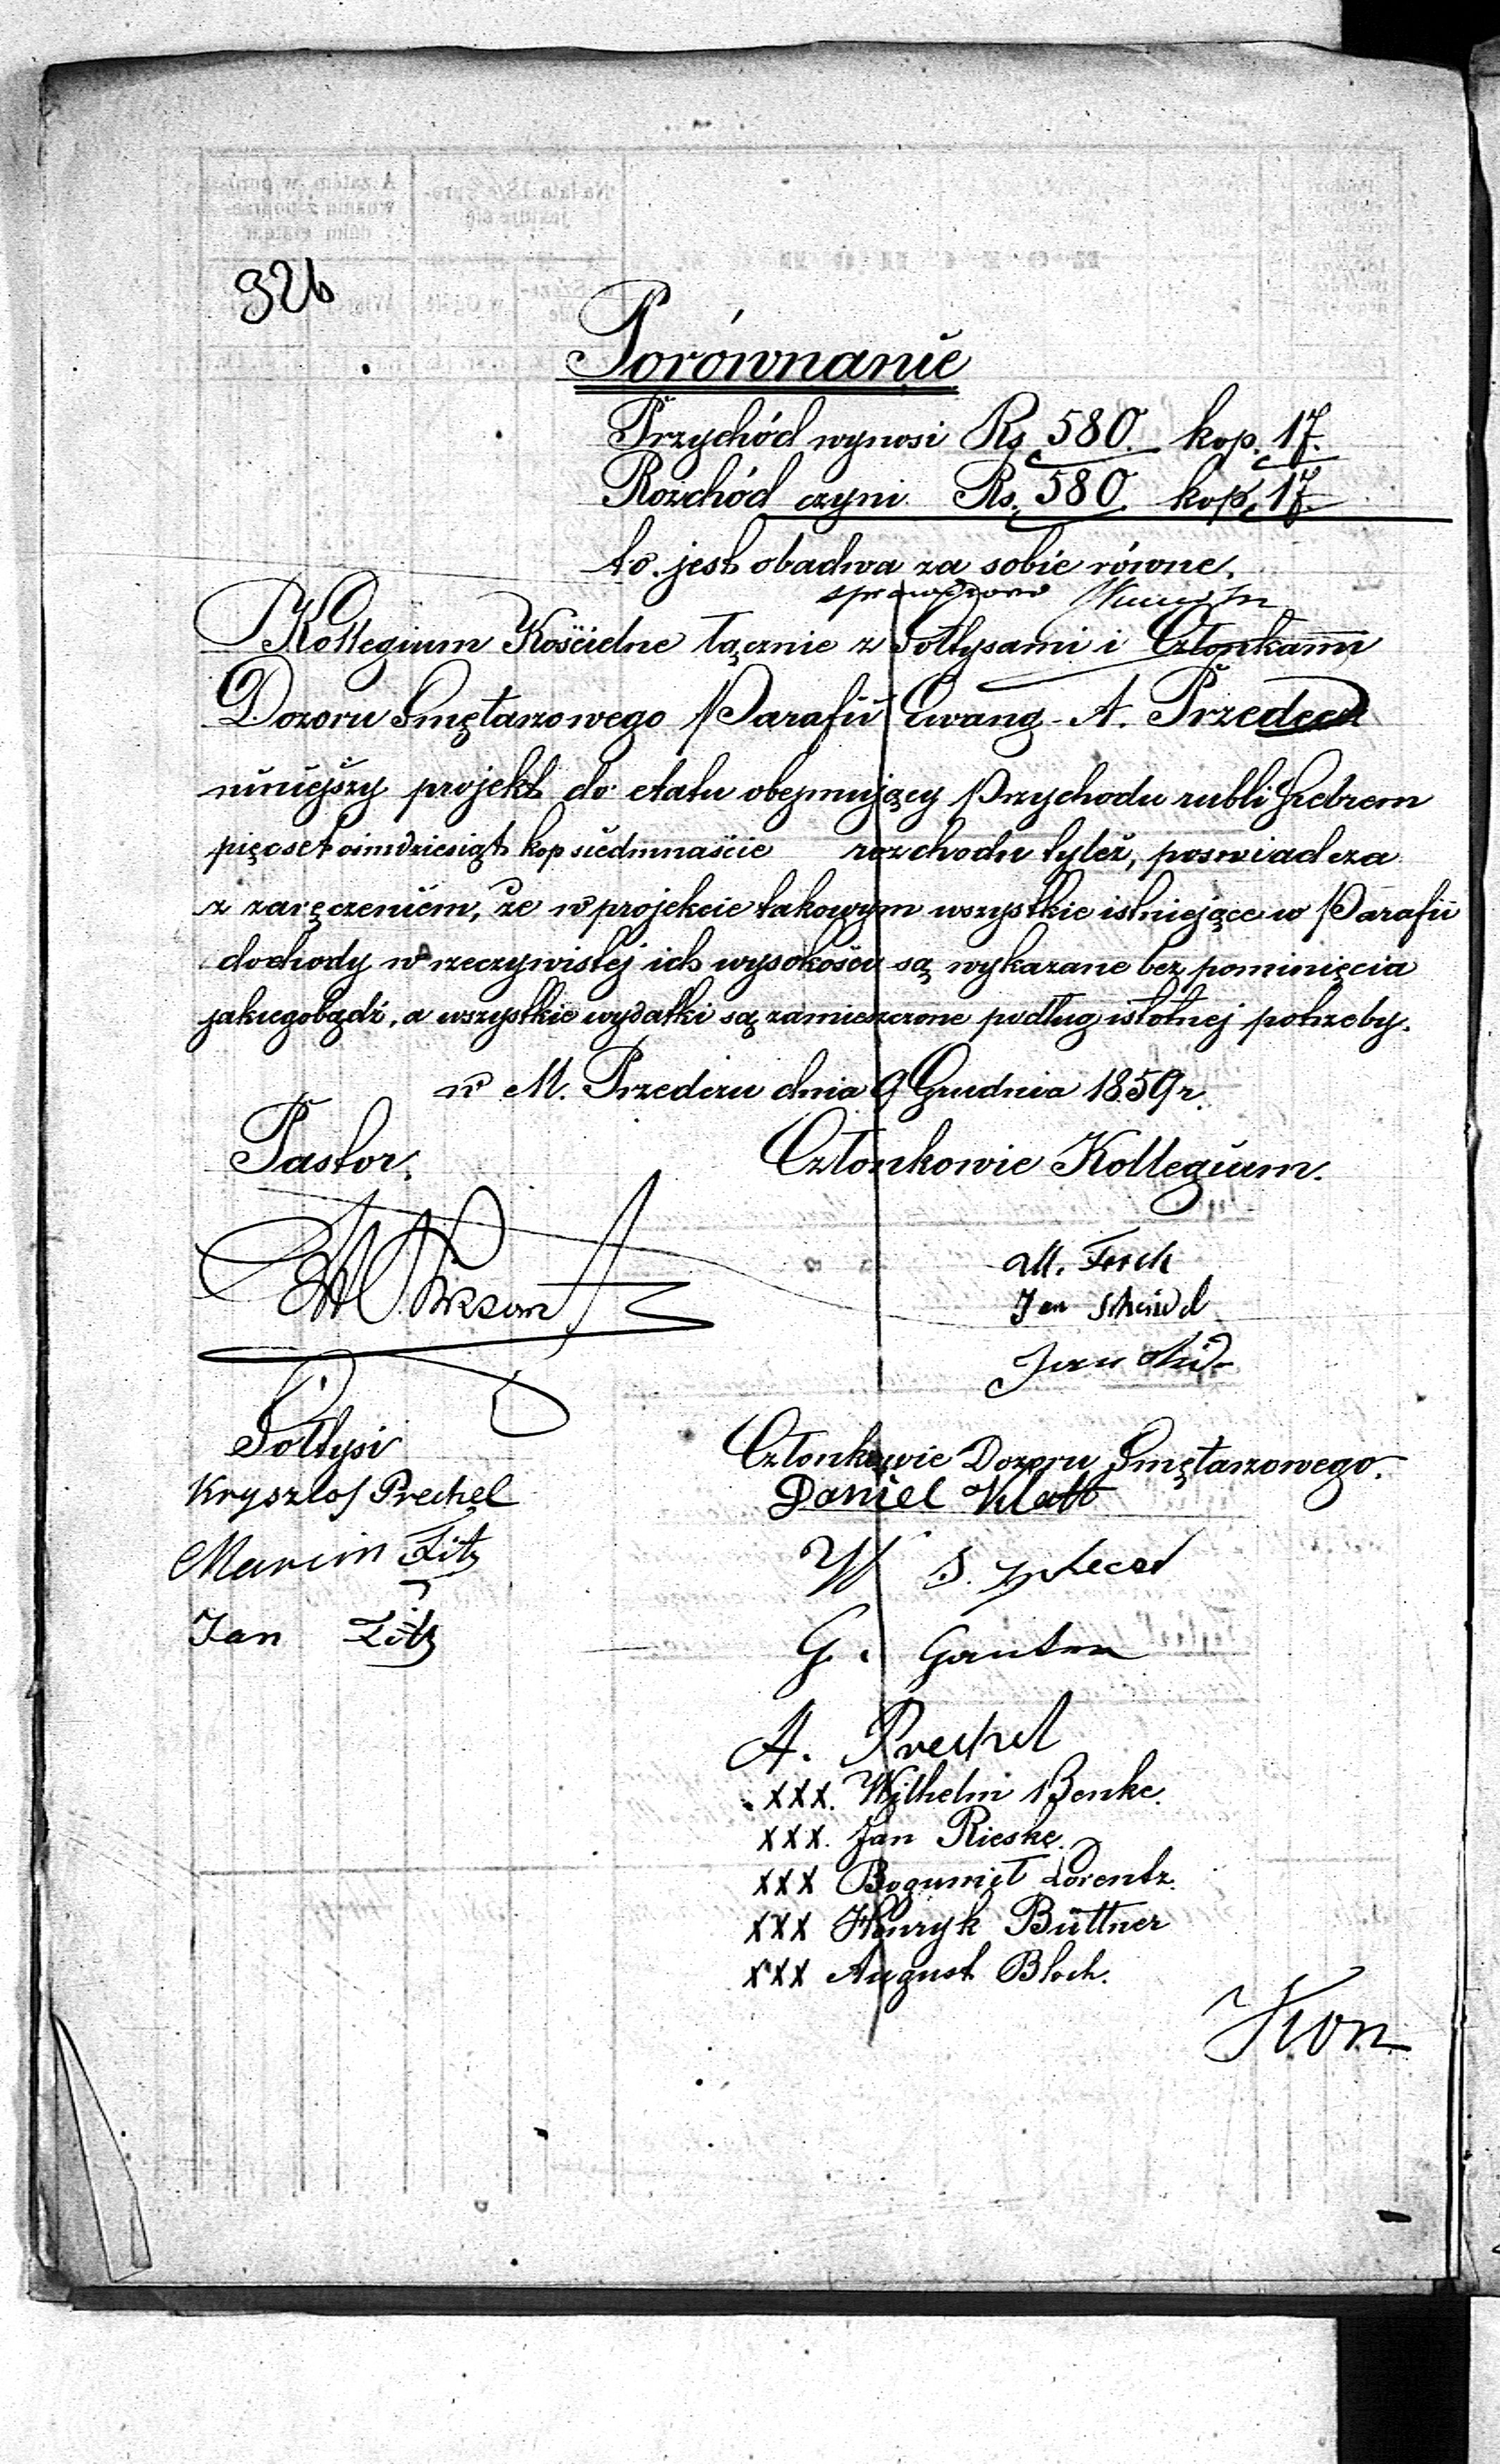 326
Porównanie
Przychód wynosi Rs. 580. kop. 17.
Rozchód czyni Rs. 580. kop. 17.
to jest obadwa za sobie równe.
sprawdzono
Kollegium Kościelne łącznie z Sołtysami i Członkami
Dozoru Smętarzowego Parafii Ewang-A. Przedecz
niniejszy projekt do etatu obejmujący Przychodu rubli srebrem
pięcset oimdziesiąt kop siedmnaście rozchodu tyleż, poswiadcza
z zaręczeniem, że w projekcie takowym wszystkie istniejące w Parafii
dochody w rzeczywistej ich wysokości są wykazane bez pominięcia
jakiegobądź, a wszystkie wydatki są zamieszczone podług istotnej potrzeby.
w M. Przedczu dnia 9 Grudnia 1859 r.
Pastor.
Członkowie Kollegium.
M.
Jan
Jan
Sołtysi
Członkowie Dozoru Smętarzowego.
Krysztof Prechel
Daniel Klatt
Marcin Litz
W S.
Jan Litz
G.
A. Prechel
XXX. Wilhelm Benke.
XXX. Jan Rieske.
XXX Bogumił Lorentz.
XXX Henryk Büttner
XXX August Bloch.